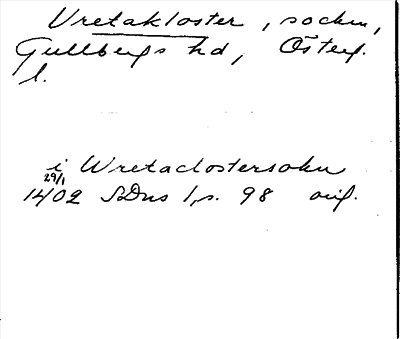 Vretakloster, socken,
Gullbergs hd, Österg.
l.
i Wretaclostersokn
29/1
1402 SDns 1, s. 98 orig.